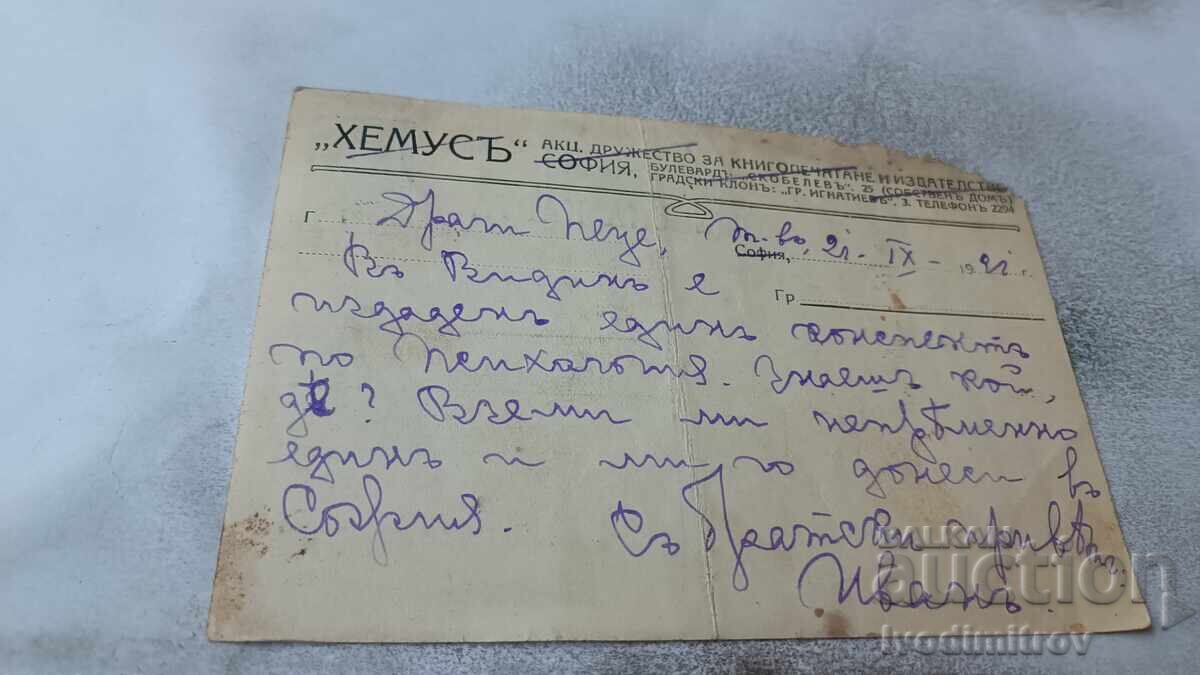 „ХЕМУСЪ“ АКЦ. ДРУЖЕСТВО ЗА КНИГОПЕЧАТАНЕ И ИЗДАТЕЛСТВО
СОФИЯ, БУЛЕВАРДЪ „СКОБЕЛЕВЪ“, 25 (СОБСТВЕНЪ ДОМЪ)
ГРАДСКИ КЛОНЪ: „ГР. ИГНАТИЕВЪ“, 3. ТЕЛЕФОНЪ 2294
Г. Драги Пеце,
София, 21. IX - 1921 г.
Гр.
Въ Видинъ е
издаденъ единъ конспектъ
по Психология. Знаешъ кой,
де? Вземи ми непрѣменно
единъ и ми го донеси въ
София. Съ братски привѣтъ.
Иванъ.
BALKAN
auction
ivodimitrov